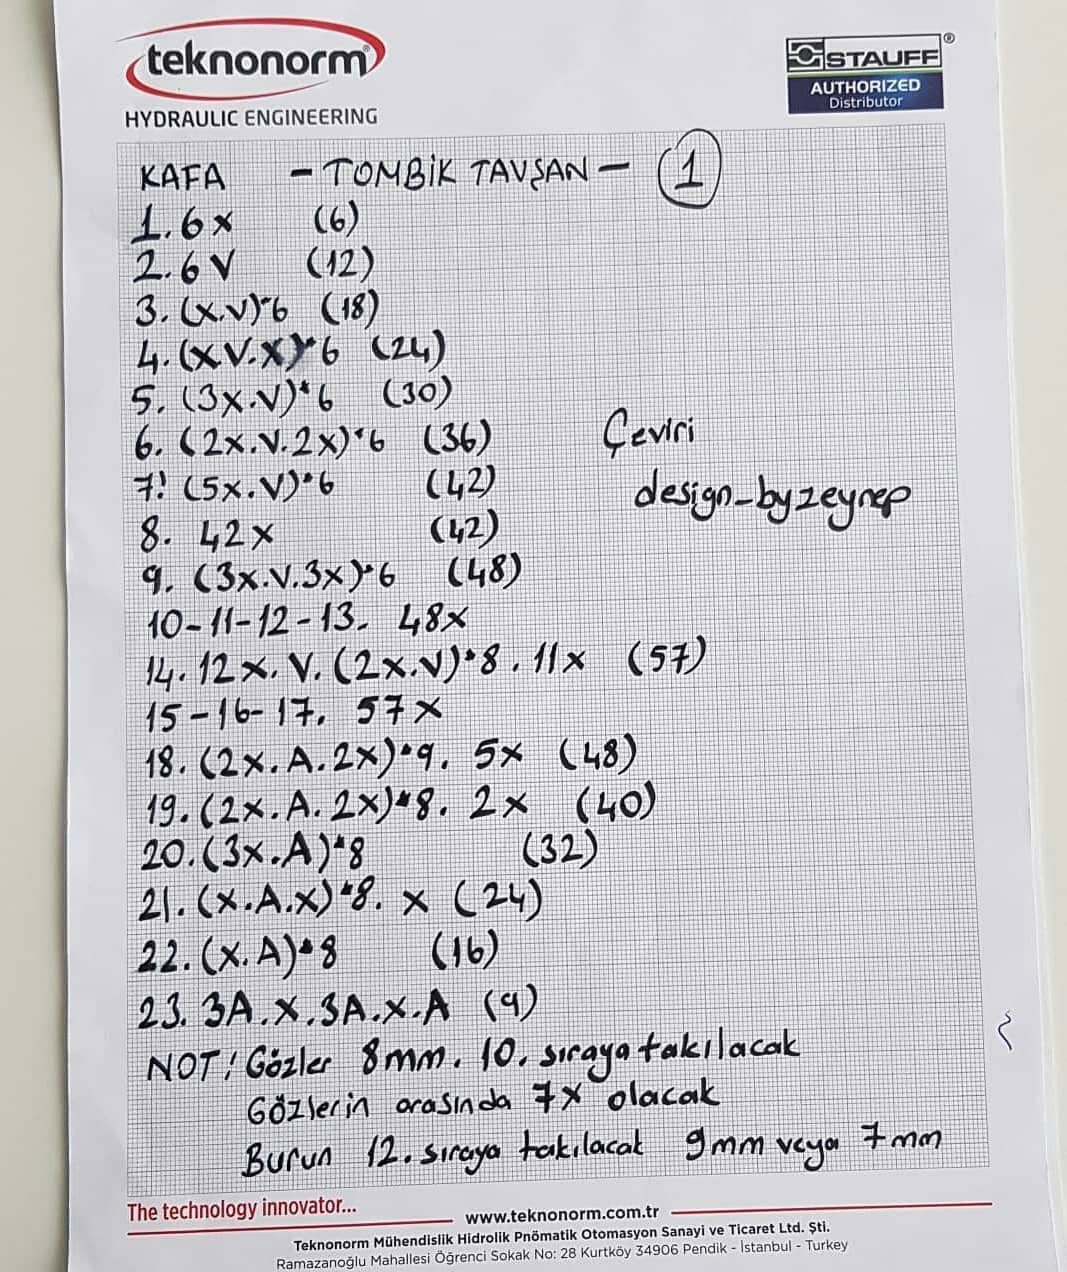 teknonorm®
HYDRAULIC ENGINEERING
STAUFF®
AUTHORIZED
Distributor
KAFA - TOMBİK TAVŞAN - 1
1. 6x (6)
2. 6V (12)
3. (x.v)*6 (18)
4. (xV.x)*6 (24)
5. (3x.V)*6 (30)
6. (2x.V.2x)*6 (36)
7! (5x.V)*6 (42)
8. 42x (42)
9. (3x.V.3x)*6 (48)
10-11-12-13. 48x
14. 12x. V. (2x.V)*8. 11x (57)
15-16-17. 57x
18. (2x.A.2x)*9. 5x (48)
19. (2x.A.2x)*8. 2x (40)
20. (3x.A)*8 (32)
21. (x.A.x)*8. x (24)
22. (x.A)*8 (16)
23. 3A.x.3A.x.A (9)
Çeviri
design_byzeynep
NOT! Gözler 8mm. 10. sıraya takılacak
Gözlerin arasında 7x olacak
Burun 12. sıraya takılacak 9mm veya 7mm
The technology innovator...
www.teknonorm.com.tr
Teknonorm Mühendislik Hidrolik Pnömatik Otomasyon Sanayi ve Ticaret Ltd. Şti.
Ramazanoğlu Mahallesi Öğrenci Sokak No: 28 Kurtköy 34906 Pendik - İstanbul - Turkey